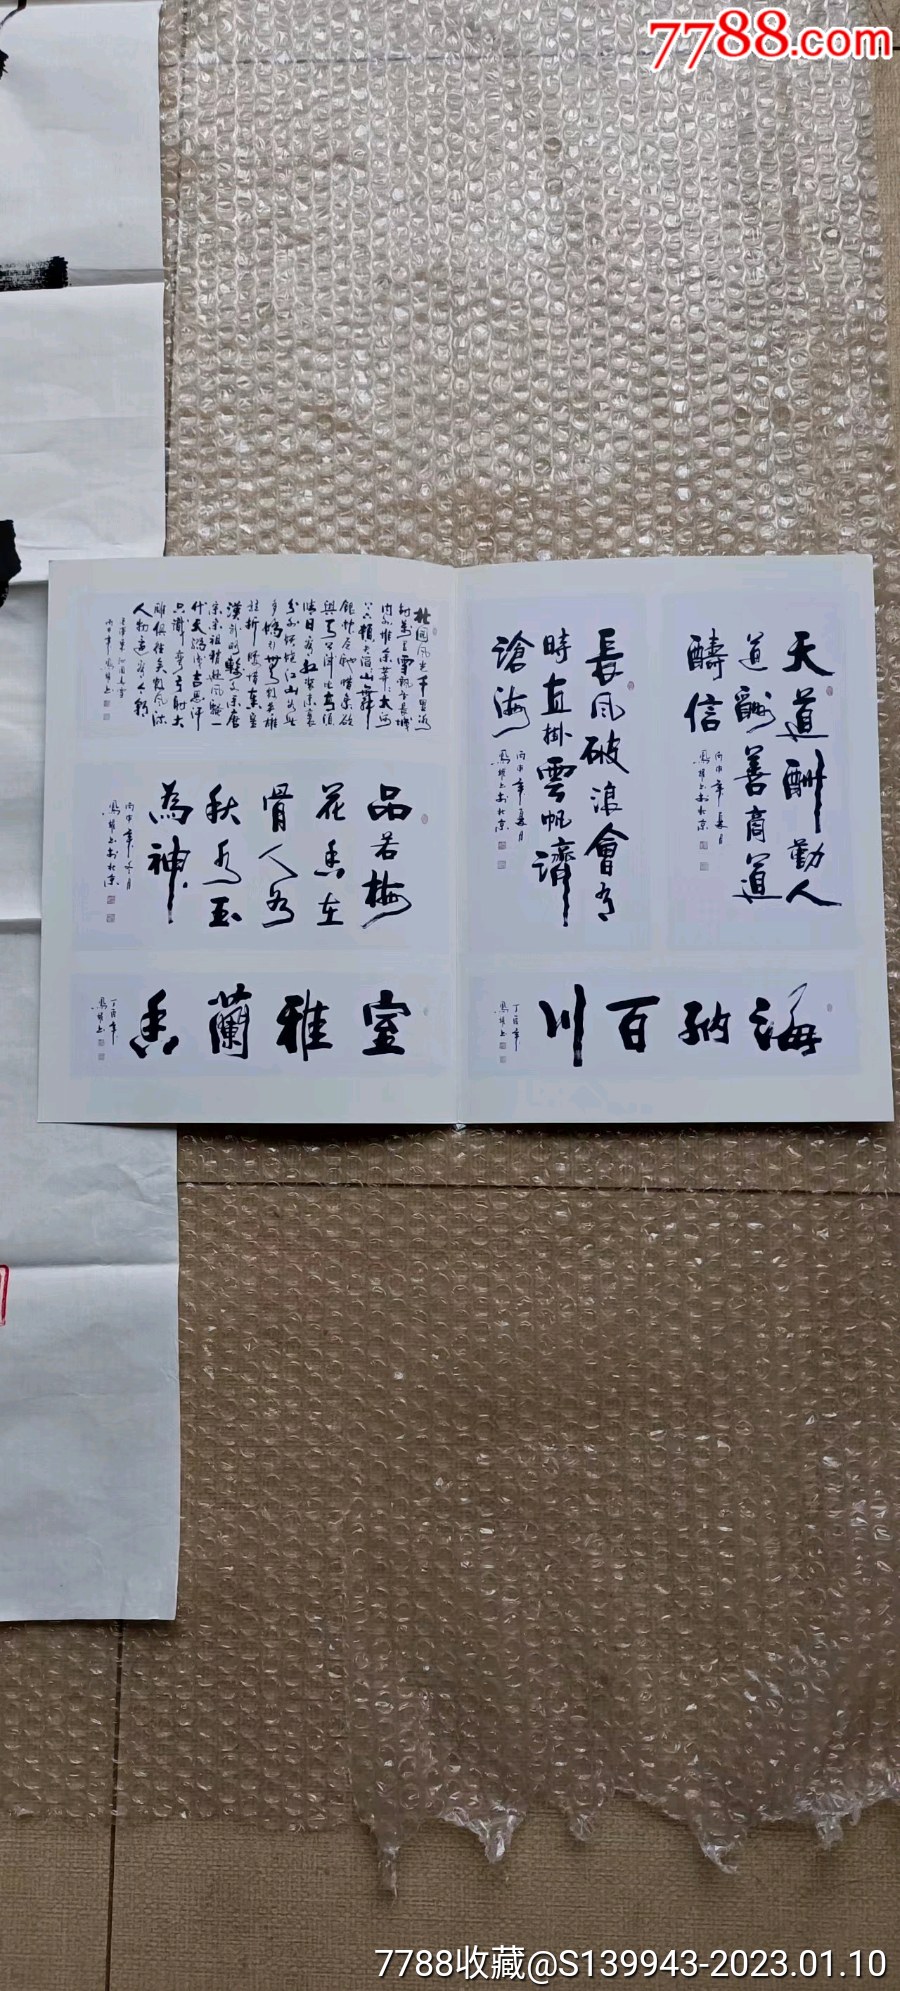 7788.com
天道酬勤人
道酬善商道
酬信
丙申年夏月
長風破浪會有
時直掛雲帆濟
滄海
丙申年夏月
海納百川
丁酉年
北國風光千里冰
封萬里雪飄望長城
內外惟餘莽莽大河
上下頓失滔滔山舞
銀蛇原馳蠟象欲
與天公試比高須
晴日看紅裝素裹
分外妖嬈江山如此
多嬌引無數英雄
競折腰惜秦皇
漢武略輸文采唐
宗宋祖稍遜風騷一
代天驕成吉思汗
只識彎弓射大
雕俱往矣數風流
人物還看今朝
品若梅
花香在
骨人如
秋水玉
為神
丙申年冬月
室雅蘭香
丁酉年
7788收藏@S139943-2023.01.10